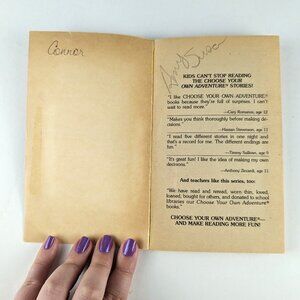 Connor
KIDS CAN'T STOP READING
THE CHOOSE YOUR
OWN ADVENTURE® STORIES!
"I like CHOOSE YOUR OWN ADVENTURE®
books because they're full of surprises. I can't
wait to read more."
—Cary Romanos, age 12
"Makes you think thoroughly before making de-
cisions."
—Hassan Stevenson, age 11
"I read five different stories in one night and
that's a record for me. The different endings are
fun."
—Timmy Sullivan, age 9
"It's great fun! I like the idea of making my own
decisions."
—Anthony Ziccardi, age 11
And teachers like this series, too:
"We have read and reread, worn thin, loved,
loaned, bought for others, and donated to school
libraries our Choose Your Own Adventure®
books."
CHOOSE YOUR OWN ADVENTURE®—
AND MAKE READING MORE FUN!